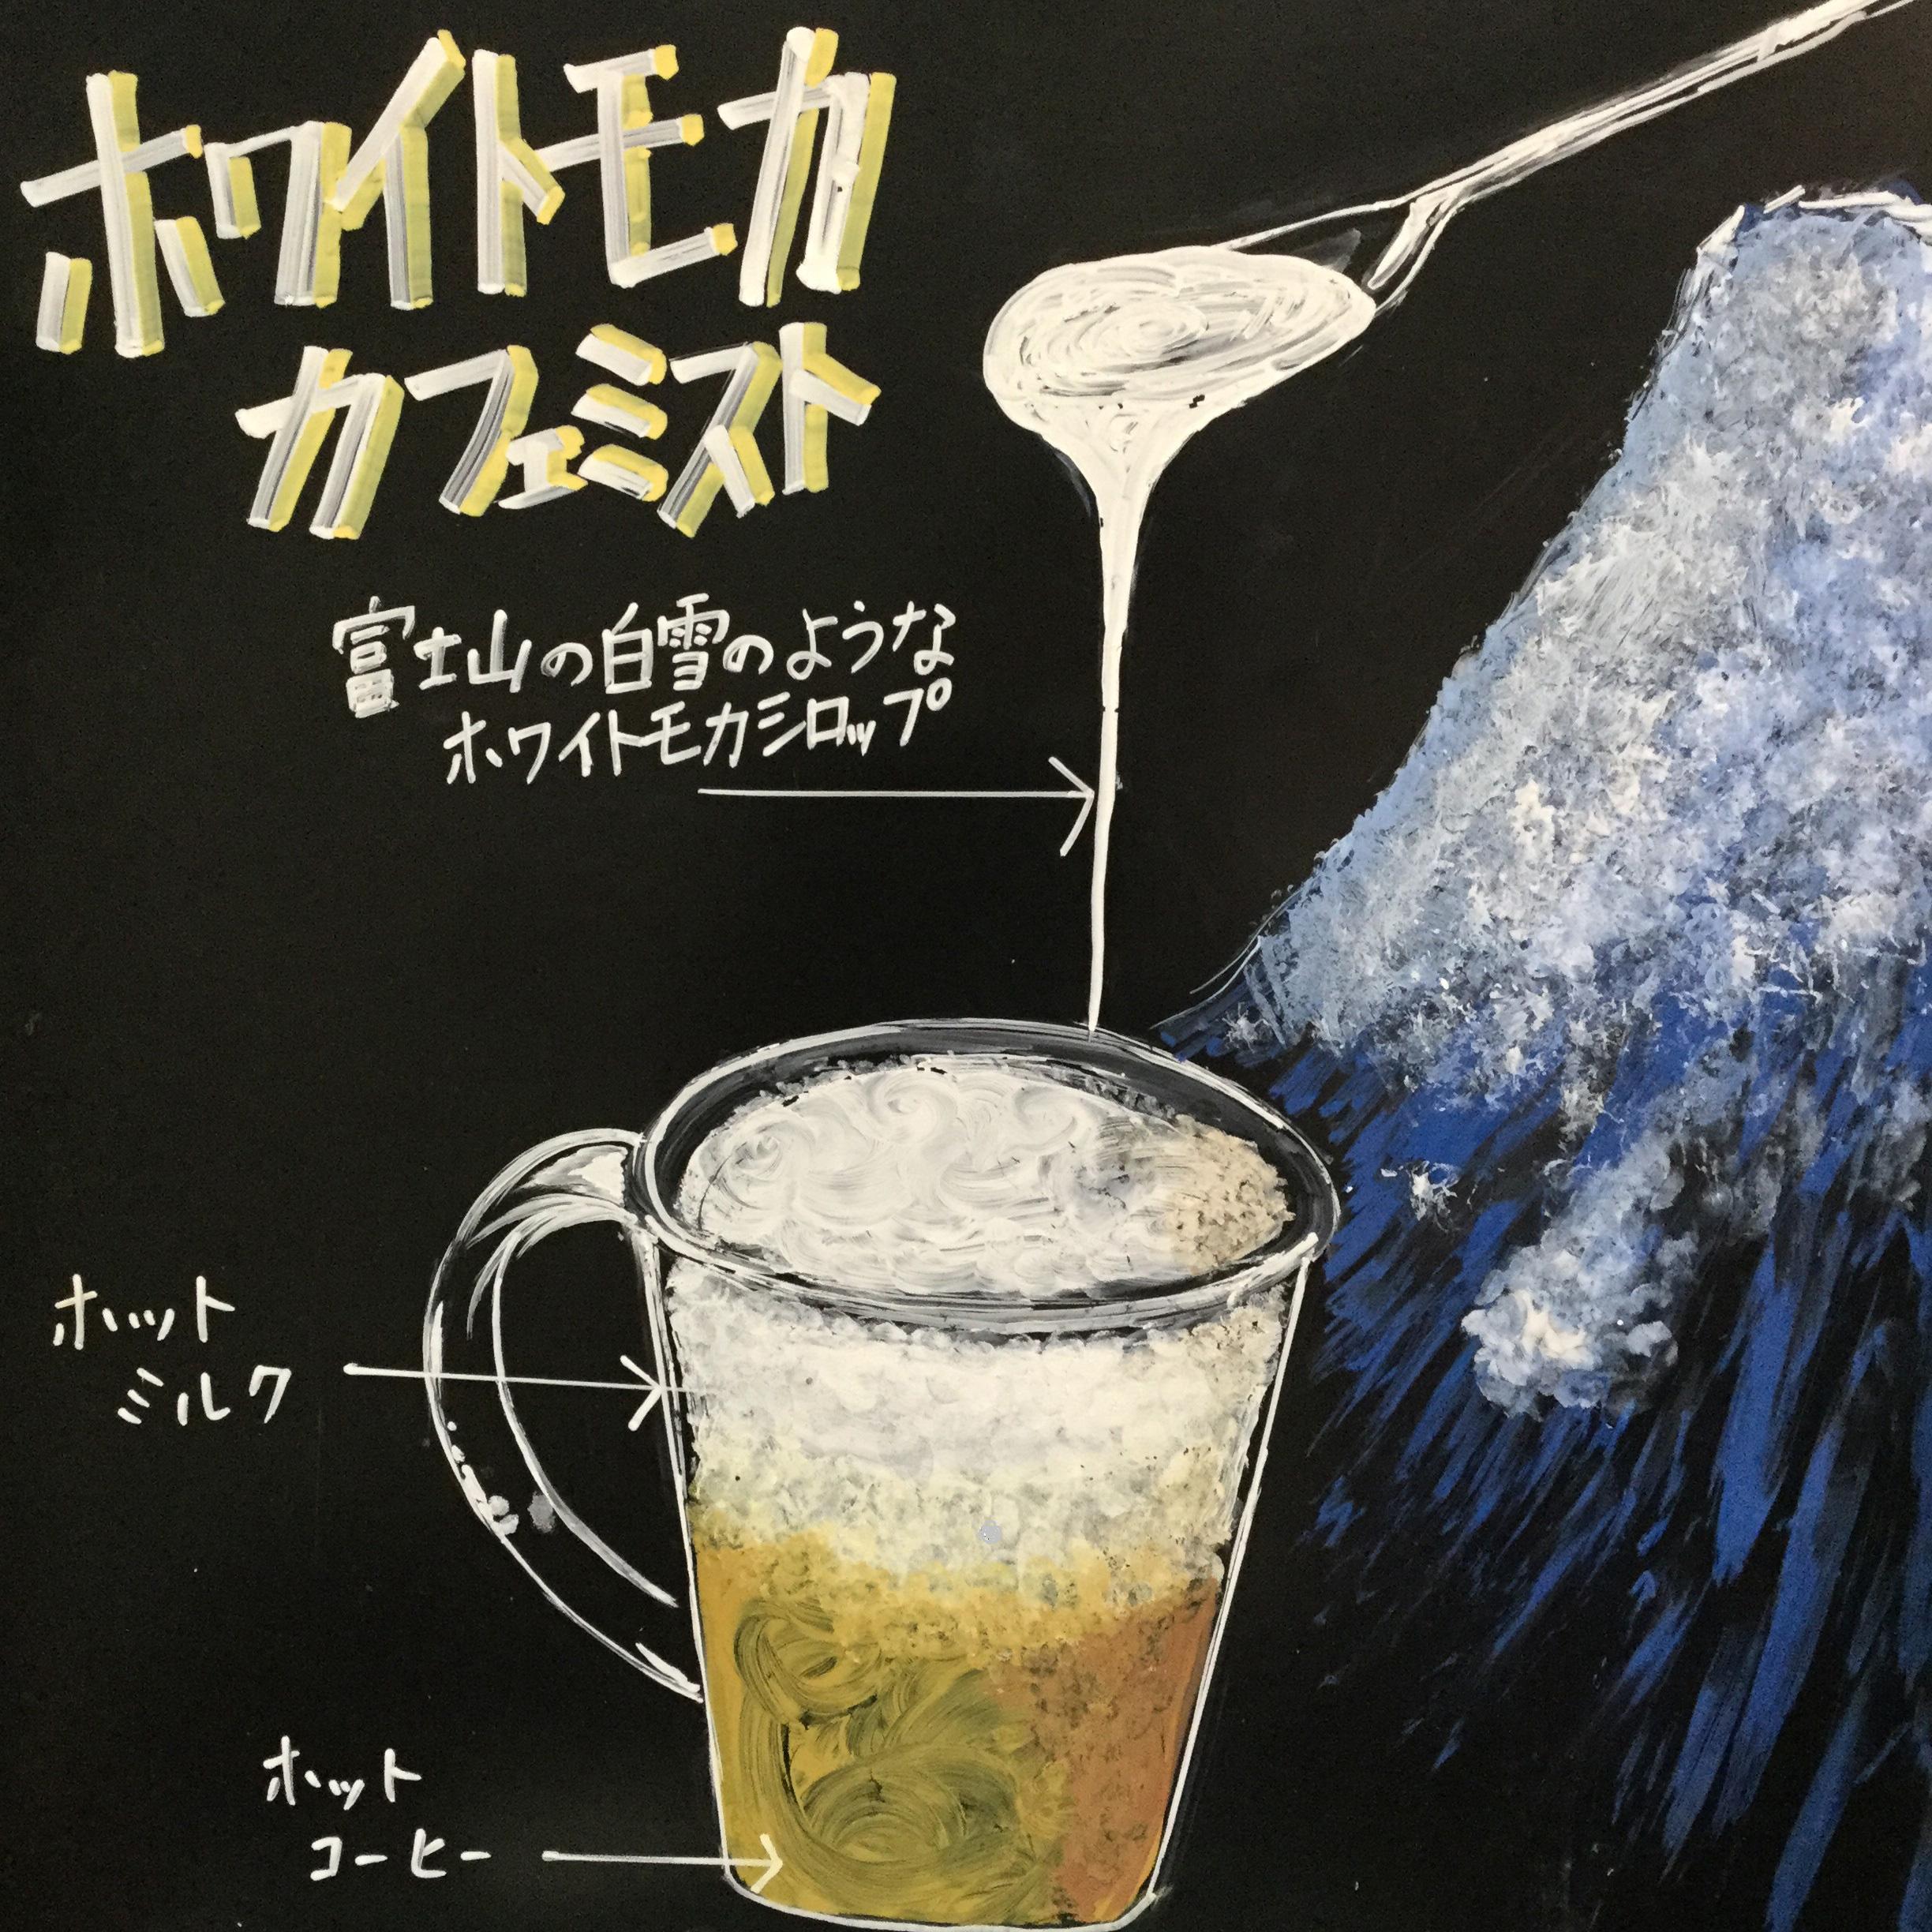 ホワイトモカ
カフェミスト
富士山の白雪のような
ホワイトモカシロップ
ホット
ミルク
ホット
コーヒー